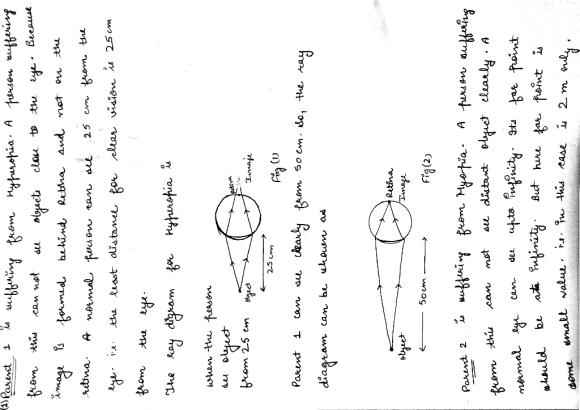 (a) Parent 1 is suffering from Hyperopia. A person suffering
from this can not see objects close to the eye. Because
image is formed behind Retina and not on the
retina. A normal person can see 25 cm from the
eye. i.e. the least distance for clear vision is 25 cm
from the eye.
The ray digram for Hyperopia is
when the person
see object
from 25 cm
object
25 cm
Image
Fig (1)
Parent 1 can see clearly from 50 cm. So, the ray
diagram can be shown as
Object
50 cm
Retina
Image
Fig (2)
Parent 2 is suffering from Myopia. A person suffering
from this can not see distant object clearly. A
normal eye can see upto infinity. Its far point
should be infinity. But here far point is
some small value. i.e. in this case is 2 m only.